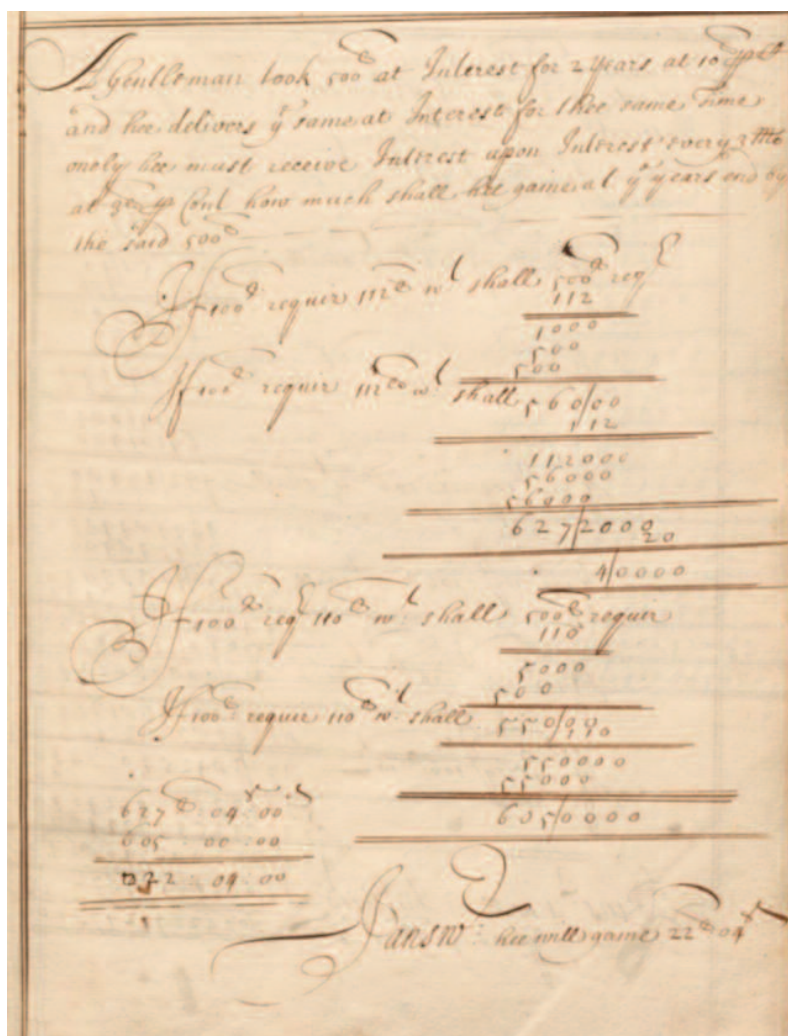 A Gentleman took 500ˡᵇ at Interest for 2 years at 10ˡᵇ p Cᵗ
and hee delivers yᵉ same at Interest for thee same Time
onely hee must receive Interest upon Interest every 3 Mo
at 3ˡᵇ p Cent how much shall hee game at yᵉ years end by
the said 500ˡᵇ
If 100ˡᵇ requir 112ˡᵇ wᵗ shall 500ˡᵇ reqʳ
112
1000
500
500
If 100ˡᵇ requir 112ˡᵇ wᵗ shall 560/00
112
112000
56000
56000
627/2000
20
4/0000
If 100ˡᵇ reqʳ 110ˡᵇ wᵗ shall 500ˡᵇ requir
110
5000
500
If 100ˡᵇ requir 110ˡᵇ wᵗ shall 550/00
110
550000
55000
605/0000
627ˡᵇ : 04ˢ : 00
605 : 00 : 00
22 : 04 : 00
I answʳ : hee will game 22ˡᵇ 04ˢ